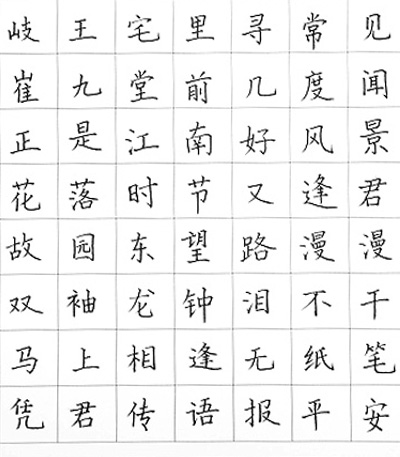 岐王宅里寻常见
崔九堂前几度闻
正是江南好风景
花落时节又逢君
故园东望路漫漫
双袖龙钟泪不干
马上相逢无纸笔
凭君传语报平安